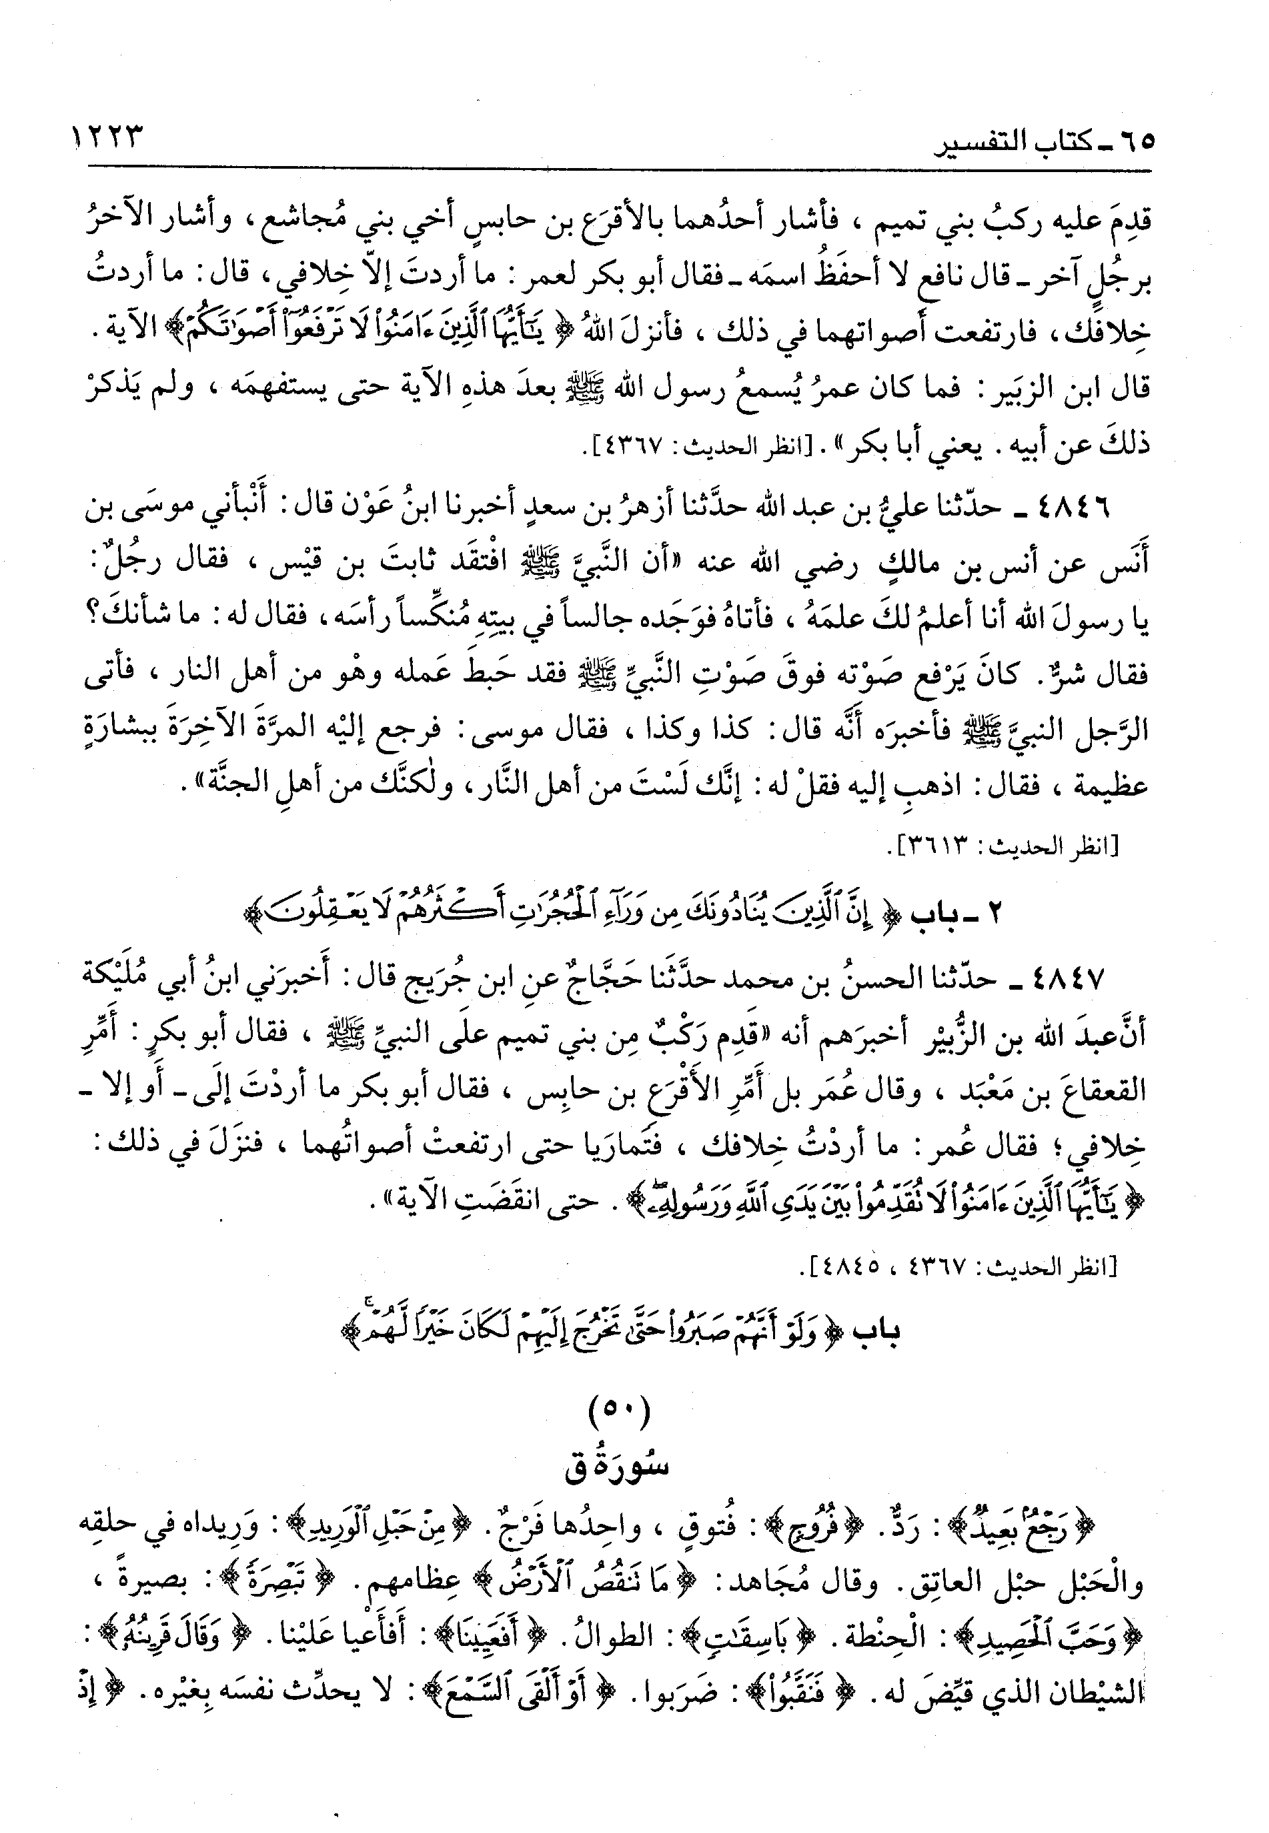 ٦٥ ـ كتاب التفسير ١٢٢٣
قدِمَ عليه ركبُ بني تميم ، فأشار أحدُهما بالأقرَع بن حابسٍ أخي بني مُجاشع، وأشار الآخرُ
برجُلٍ آخر ـ قال نافع لا أحفَظُ اسمَه ـ فقال أبو بكر لعمر: ما أردتَ إلاّ خِلافي، قال: ما أردتُ
خِلافك، فارتفعت أصواتهما في ذلك ، فأنزلَ اللهُ ﴿ يَٰٓأَيُّهَا ٱلَّذِينَ ءَامَنُوا۟ لَا تَرْفَعُوٓا۟ أَصْوَٰتَكُمْ﴾ الآية .
قال ابن الزبَير: فما كان عمرُ يُسمعُ رسول الله ﷺ بعدَ هذهِ الآية حتى يستفهمَه ، ولم يَذكرْ
ذلكَ عن أبيه. يعني أبا بكر». [انظر الحديث: ٤٣٦٧].
٤٨٤٦ ـ حدّثنا عليُّ بن عبد الله حدَّثنا أزهرُ بن سعدٍ أخبرنا ابنُ عَوْن قال: أنْبأني موسَى بن
أَنَس عن أنس بن مالكٍ رضي الله عنه «أن النَّبيَّ ﷺ افْتقَد ثابتَ بن قيْس ، فقال رجُلٌ:
يا رسولَ الله أنا أعلمُ لكَ علمَهُ ، فأتاهُ فوَجَده جالساً في بيتِهِ مُنكِّساً رأسَه، فقال له: ما شأنكَ؟
فقال شرٌّ. كانَ يَرْفع صَوْته فوقَ صَوْتِ النَّبيِّ ﷺ فقد حَبطَ عَمله وهْو من أهل النار ، فأتى
الرَّجل النبيَّ ﷺ فأخبرَه أنَّه قال: كذا وكذا ، فقال موسى: فرجع إليْه المرَّةَ الآخِرَةَ ببشارَةٍ
عظيمة ، فقال: اذهبِ إليه فقلْ له: إنَّك لَسْتَ من أهل النَّار، ولٰكنَّك من أهلِ الجنَّة».
[انظر الحديث: ٣٦١٣].
٢ ـ باب ﴿ إِنَّ ٱلَّذِينَ يُنَادُونَكَ مِن وَرَآءِ ٱلْحُجُرَٰتِ أَكْثَرُهُمْ لَا يَعْقِلُونَ﴾
٤٨٤٧ ـ حدّثنا الحسنُ بن محمد حدَّثَنا حَجَّاجٌ عنِ ابن جُرَيج قال: أَخبرَني ابنُ أبي مُلَيْكة
أنَّ عبدَ الله بن الزُّبيْر أخبرَهم أنه «قدِم رَكْبٌ مِن بني تميم علَى النبيِّ ﷺ ، فقال أبو بكرٍ: أَمِّرِ
القعقاعَ بن مَعْبَد ، وقال عُمَر بل أَمِّرِ الأقْرَع بن حابِس ، فقال أبو بكر ما أردْتَ إلَى ـ أو إلا ـ
خِلافي؛ فقال عُمر: ما أردْتُ خِلافك ، فتَماريا حتى ارتفعتْ أصواتُهما ، فنزَلَ في ذلك:
﴿ يَٰٓأَيُّهَا ٱلَّذِينَ ءَامَنُوا۟ لَا نُقَدِّمُوا۟ بَيْنَ يَدَيِ ٱللَّهِ وَرَسُولِهِۦ﴾. حتى انقَضَتِ الآية».
[انظر الحديث: ٤٣٦٧ ، ٤٨٤٥].
باب ﴿ وَلَوْ أَنَّهُمْ صَبَرُوا۟ حَتَّىٰ تَخْرُجَ إِلَيْهِمْ لَكَانَ خَيْرًا لَّهُمْ ۚ﴾
(٥٠)
سُورَةُ ق
﴿رَجْعٌۢ بَعِيدٌ﴾: رَدٌّ. ﴿فُرُوجٍ﴾: فُتوقٍ ، واحِدُها فَرْجٌ. ﴿مِنْ حَبْلِ ٱلْوَرِيدِ﴾: وَرِيداه في حلقِه
والْحَبْل حبْل العاتِق. وقال مُجَاهد: ﴿مَا نَنقُصُ ٱلْأَرْضُ﴾ عِظامهم. ﴿تَبْصِرَةً﴾: بصيرةً ،
﴿وَحَبَّ ٱلْحَصِيدِ﴾: الْحِنطة. ﴿بَاسِقَٰتٍ﴾: الطوالُ. ﴿أَفَعَيِينَا﴾: أَفَأَعْيا عَليْنا. ﴿وَقَالَ قَرِينُهُۥ﴾:
الشيْطان الذي قيِّضَ له. ﴿فَنَقَّبُوا۟﴾: ضرَبوا. ﴿أَوْ أَلْقَى ٱلسَّمْعَ﴾: لا يحدِّث نفسَه بِغيْره. ﴿إِذْ